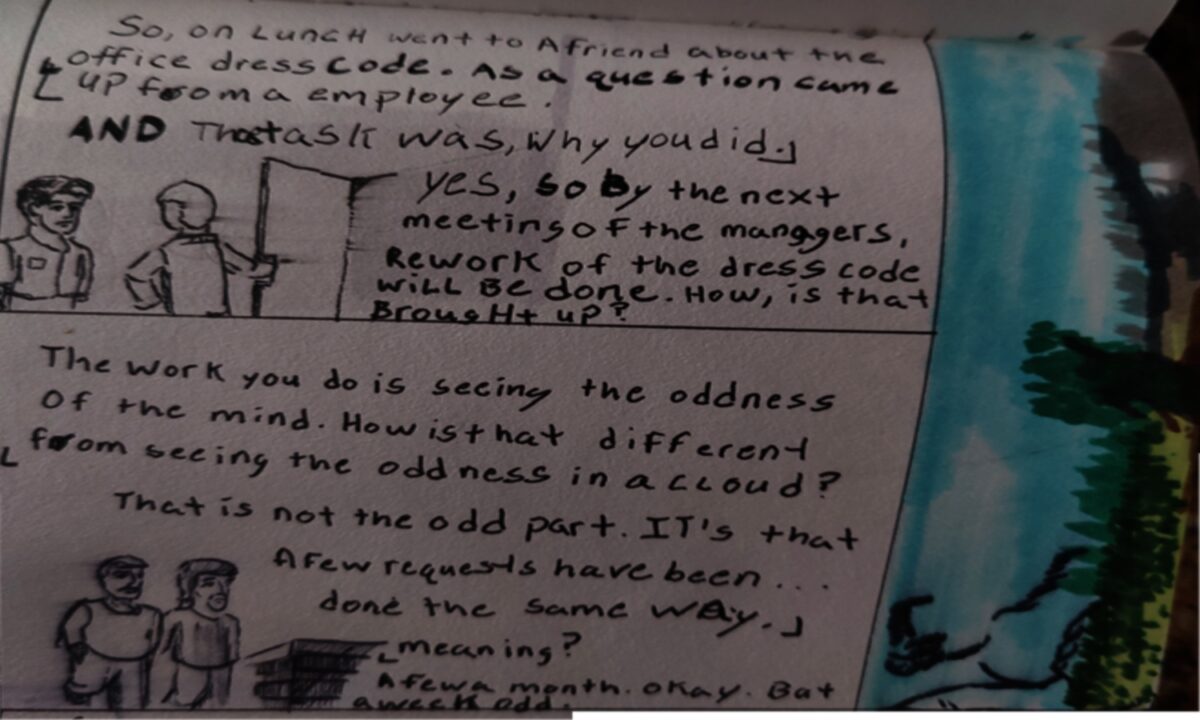 So, on Lunch went to A friend about the
office dress code. As a question came
up from a employee.
AND That ask was, Why you did.
yes, so by the next
meeting of the managers,
Rework of the dress code
will Be done. How, is that
Brought up?
The work you do is seeing the oddness
Of the mind. How is that different
from seeing the oddness in a cloud?
That is not the odd part. IT's that
A few requests have been ...
done the same way.
meaning?
A few a month. okay. But
a week odd.